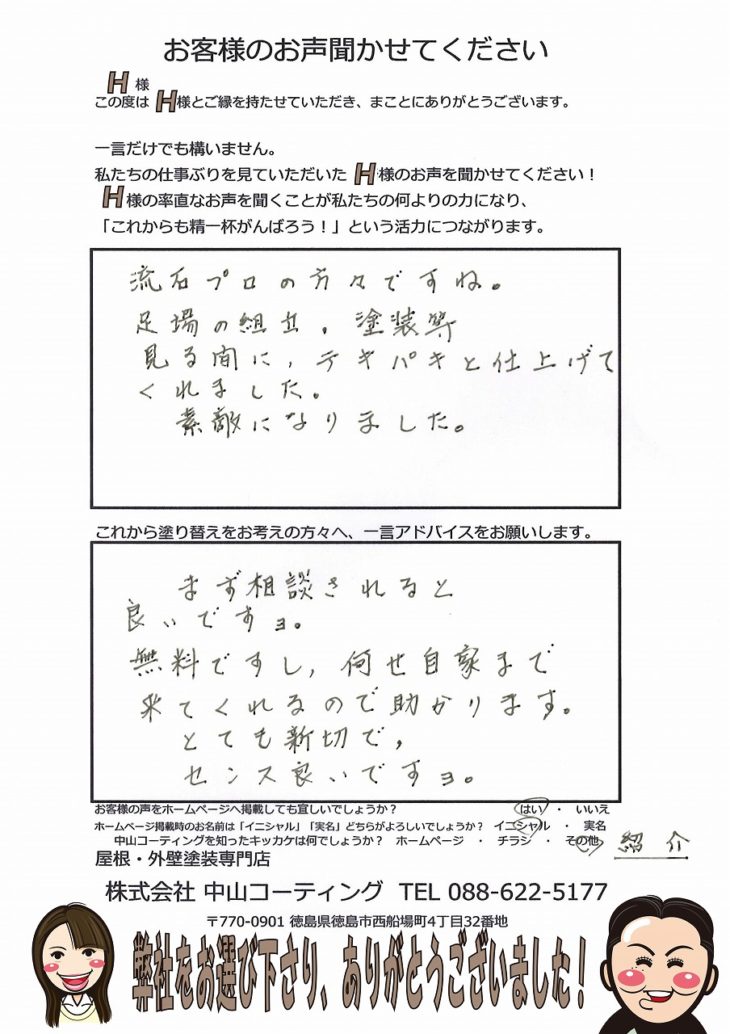 お客様のお声聞かせてください
H 様
この度は H様とご縁を持たせていただき、まことにありがとうございます。
一言だけでも構いません。
私たちの仕事ぶりを見ていただいた H 様のお声を聞かせてください！
H様の率直なお声を聞くことが私たちの何よりの力になり、
「これからも精一杯がんばろう！」という活力につながります。
流石プロの方々ですね。
足場の組立，塗装等
見る間に，テキパキと仕上げて
くれました。
素敵になりました。
これから塗り替えをお考えの方々へ、一言アドバイスをお願いします。
まず相談されると
良いですョ。
無料ですし，何せ自家まで
来てくれるので助かります。
とても新切で，
センス良いですョ。
お客様の声をホームページへ掲載しても宜しいでしょうか？ はい ・ いいえ
ホームページ掲載時のお名前は「イニシャル」「実名」どちらがよろしいでしょうか？ イニシャル ・ 実名
中山コーティングを知ったキッカケは何でしょうか？ ホームページ ・ チラシ ・ その他 紹介
屋根・外壁塗装専門店
株式会社 中山コーティング TEL 088-622-5177
〒770-0901 徳島県徳島市西船場町4丁目32番地
弊社をお選び下さり、ありがとうございました！